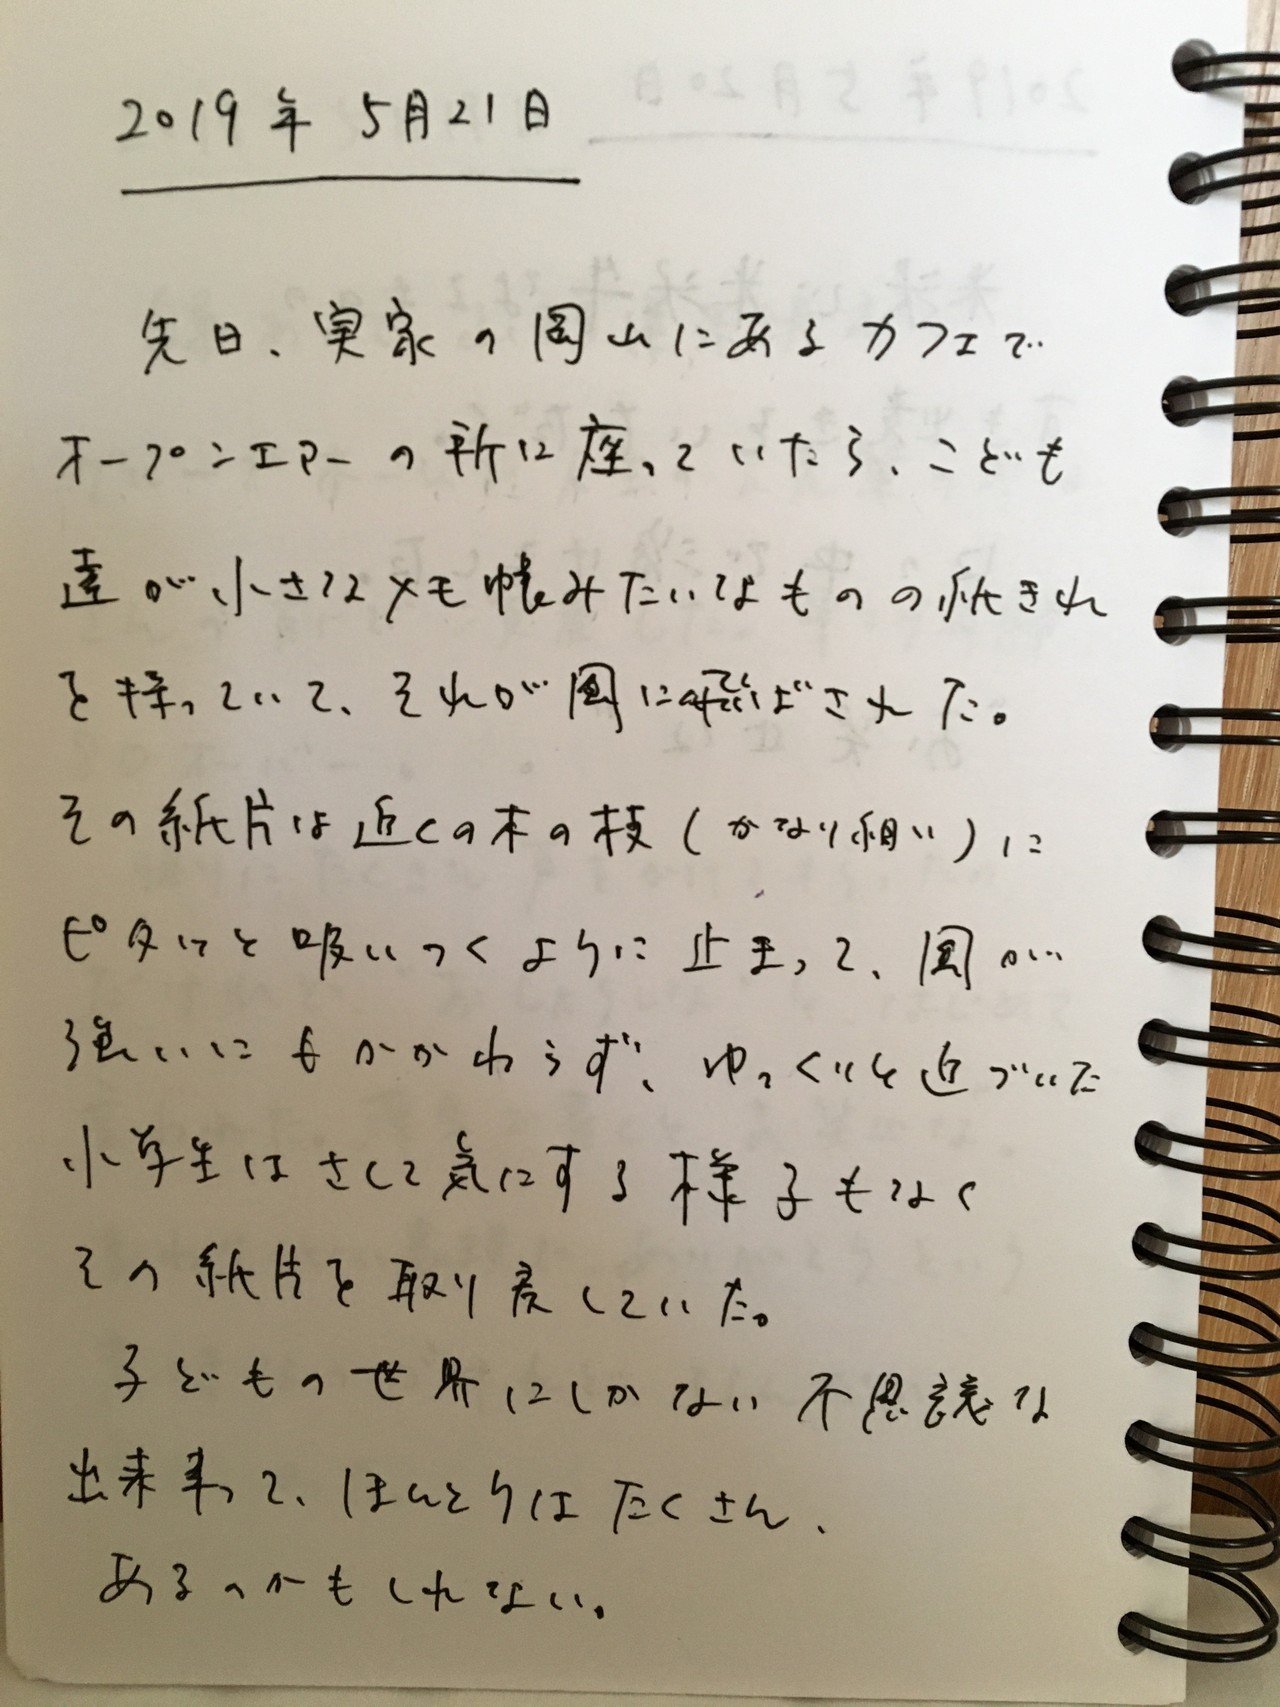 2019年 5月21日
先日、実家の岡山にあるカフェで
オープンエアーの所に座っていたら、こども
達が小さなメモ帳みたいなものの紙きれ
を持っていて、それが風に飛ばされた。
その紙片は近くの木の枝(かなり細い)に
ピタッと吸いつくように止まって、風が
強いにもかかわらず、ゆっくりと近づいた
小学生はさして気にする様子もなく
その紙片を取り戻していた。
子どもの世界にしかない不思議な
出来事って、ほんとうはたくさん、
あるのかもしれない。